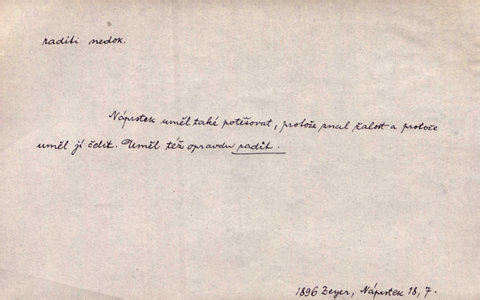 raditi nedok.
Náprstek uměl také potěšovat, protože znal žalost a protože
uměl jí čelit. Uměl též opravdu radit.
1896 Zeyer, Náprstek 18, 7.